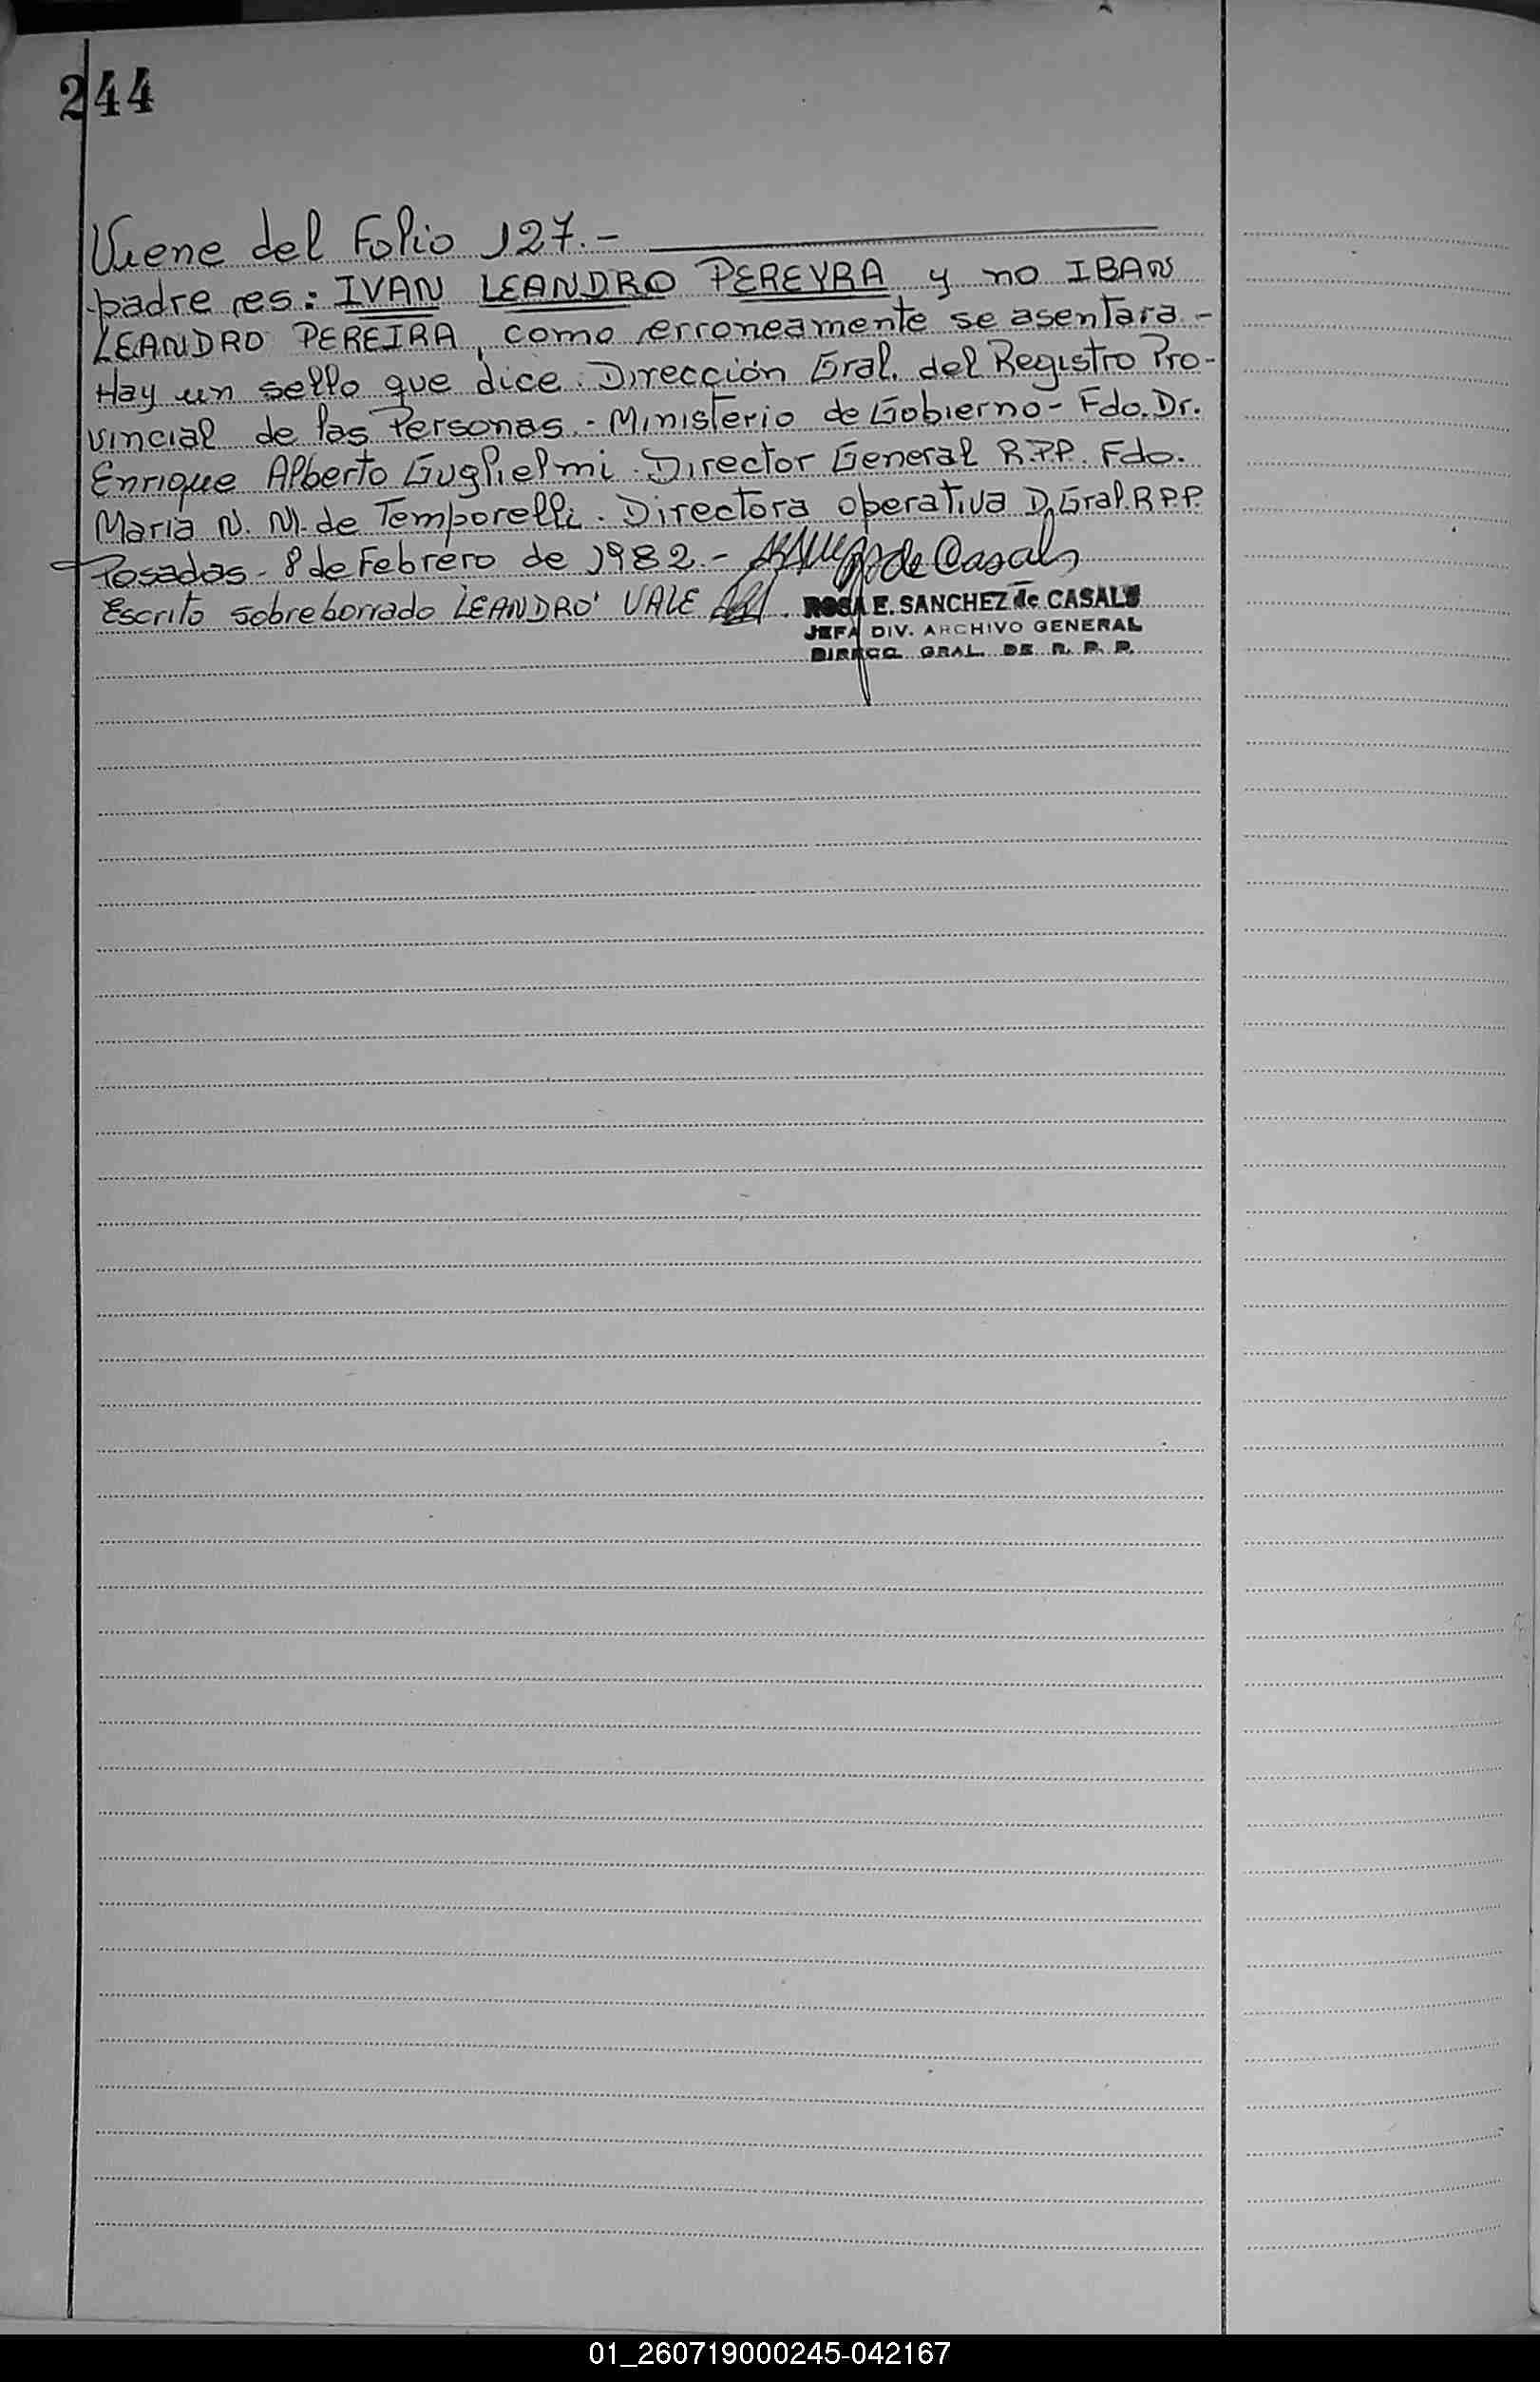 244
Viene del Folio 127.-
padre es: IVAN LEANDRO PEREYRA y no IBAN
LEANDRO PEREIRA, como erroneamente se asentara.-
Hay un sello que dice: Dirección Gral. del Registro Pro-
vincial de las Personas.- Ministerio de Gobierno- Fdo. Dr.
Enrique Alberto Guglielmi. Director General R.P.P. Fdo.
Maria N. M. de Temporelli. Directora operativa D. Gral. R.P.P.
Posadas- 8 de Febrero de 1982.- de Casals
Escrito sobreborrado LEANDRO VALE
ROSA E. SANCHEZ de CASALS
JEFA DIV. ARCHIVO GENERAL
DIRECC. GRAL. DE R. P. P.
01_260719000245-042167